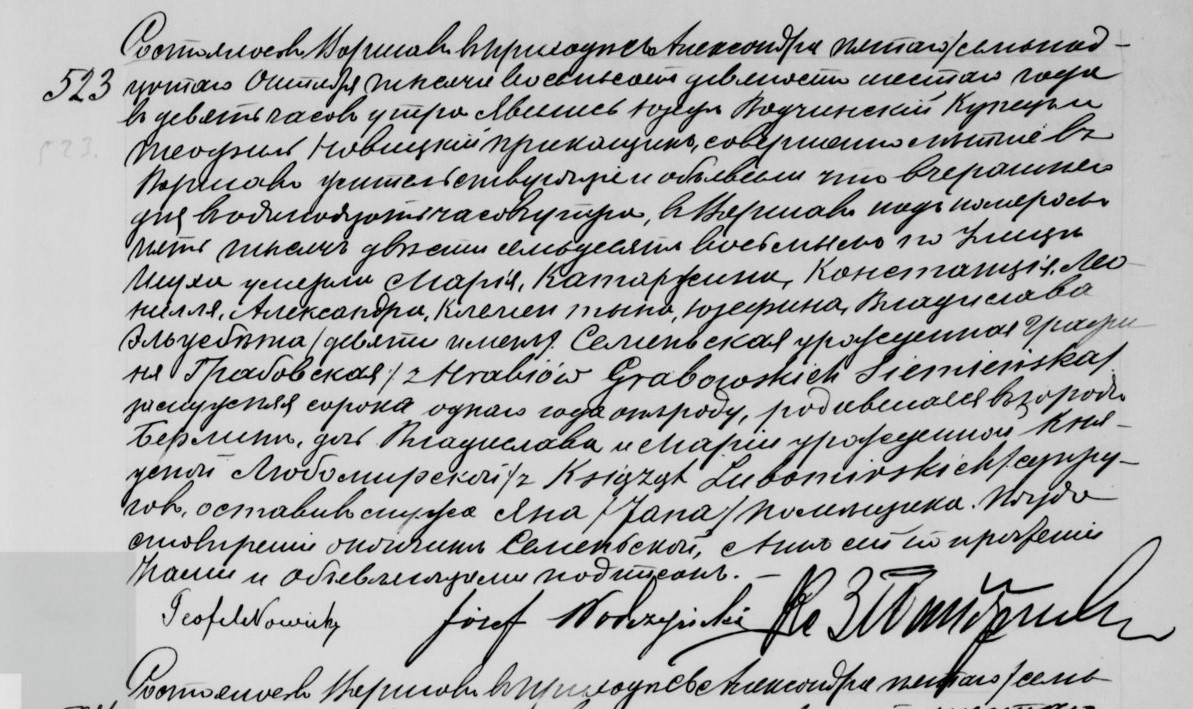 Состоялось въ Варшавѣ въ приходѣ Св. Александра пятаго /семнад-
523 цатаго Октября тысяча восемьсотъ девяносто шестаго года
въ девять часовъ утра. Явились Юзефъ Водчинскій Купецъ и
Теофилъ Новицкій прикащикъ, совершеннолѣтніе въ
523.
Варшавѣ жительствующіе и объявили что вчерашняго
дня въ одинадцать часовъ утра, въ Варшавѣ подъ номеромъ
пять тысячъ двѣсти семьдесятъ восьмымъ по Улицѣ
умерла Марія, Катаржина, Констанція, Лео-
нилля, Александра, Клемен тына, Юзефина, Владислава
Эльжбѣта /девяти именъ/ Семеньская урожденная Графи-
ня Грабовская /z Hrabiów Grabowskich Siemieńska/
замужняя сорока одного года отъ роду, родившаяся въ городѣ
Берлинѣ, дочь Владислава и Маріи урожденной Кня-
женой Любомирской /z Książąt Lubomirskich/ супру-
говъ, оставивъ мужа Яна /Jana/ помѣщика. По удо-
стовѣреніи о кончинѣ Семеньской, Актъ сей по прочтеніи
Нами и объявляющими подписанъ. –
Teofil Nowicki Józef Wodzyński
Состоялось въ Варшавѣ въ приходѣ Св. Александра пятаго /семь-